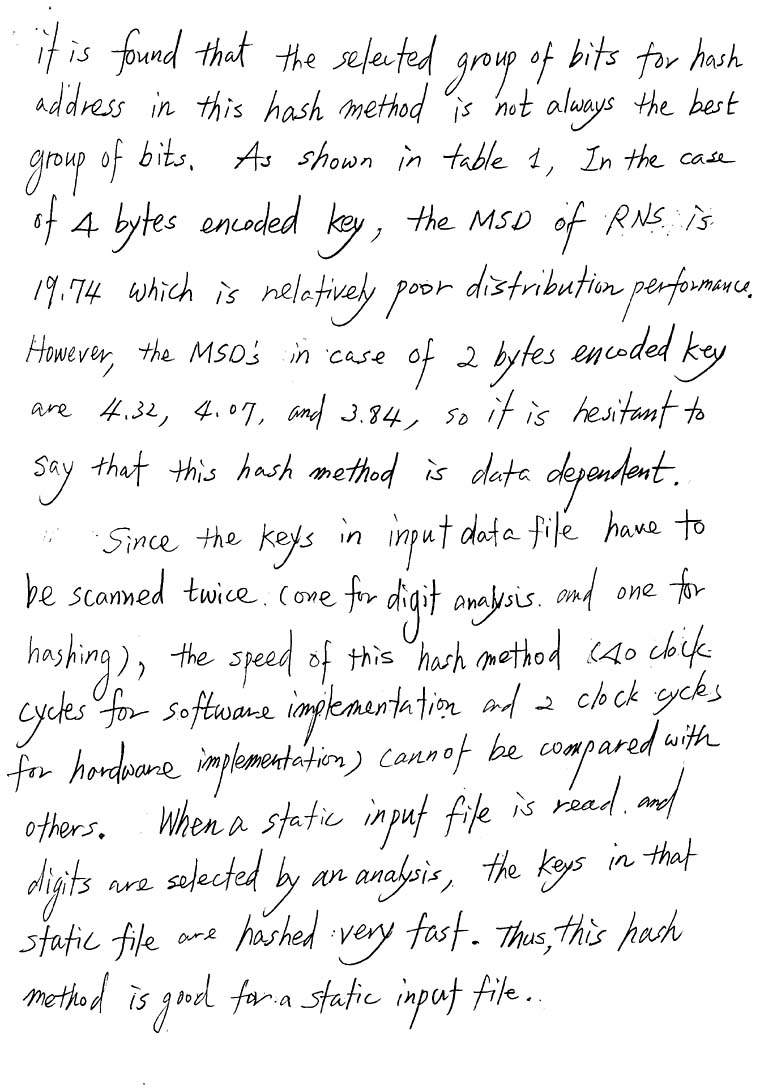 it is found that the selected group of bits for hash
address in this hash method is not always the best
group of bits. As shown in table 1, In the case
of 4 bytes encoded key, the MSD of RNS is
19.74 which is relatively poor distribution performance.
However, the MSD's in case of 2 bytes encoded key
are 4.32, 4.07, and 3.84, so it is hesitant to
say that this hash method is data dependent.
Since the keys in input data file have to
be scanned twice (one for digit analysis and one for
hashing), the speed of this hash method (40 clock
cycles for software implementation and 2 clock cycles
for hardware implementation) cannot be compared with
others. When a static input file is read and
digits are selected by an analysis, the keys in that
static file are hashed very fast. Thus, this hash
method is good for a static input file.